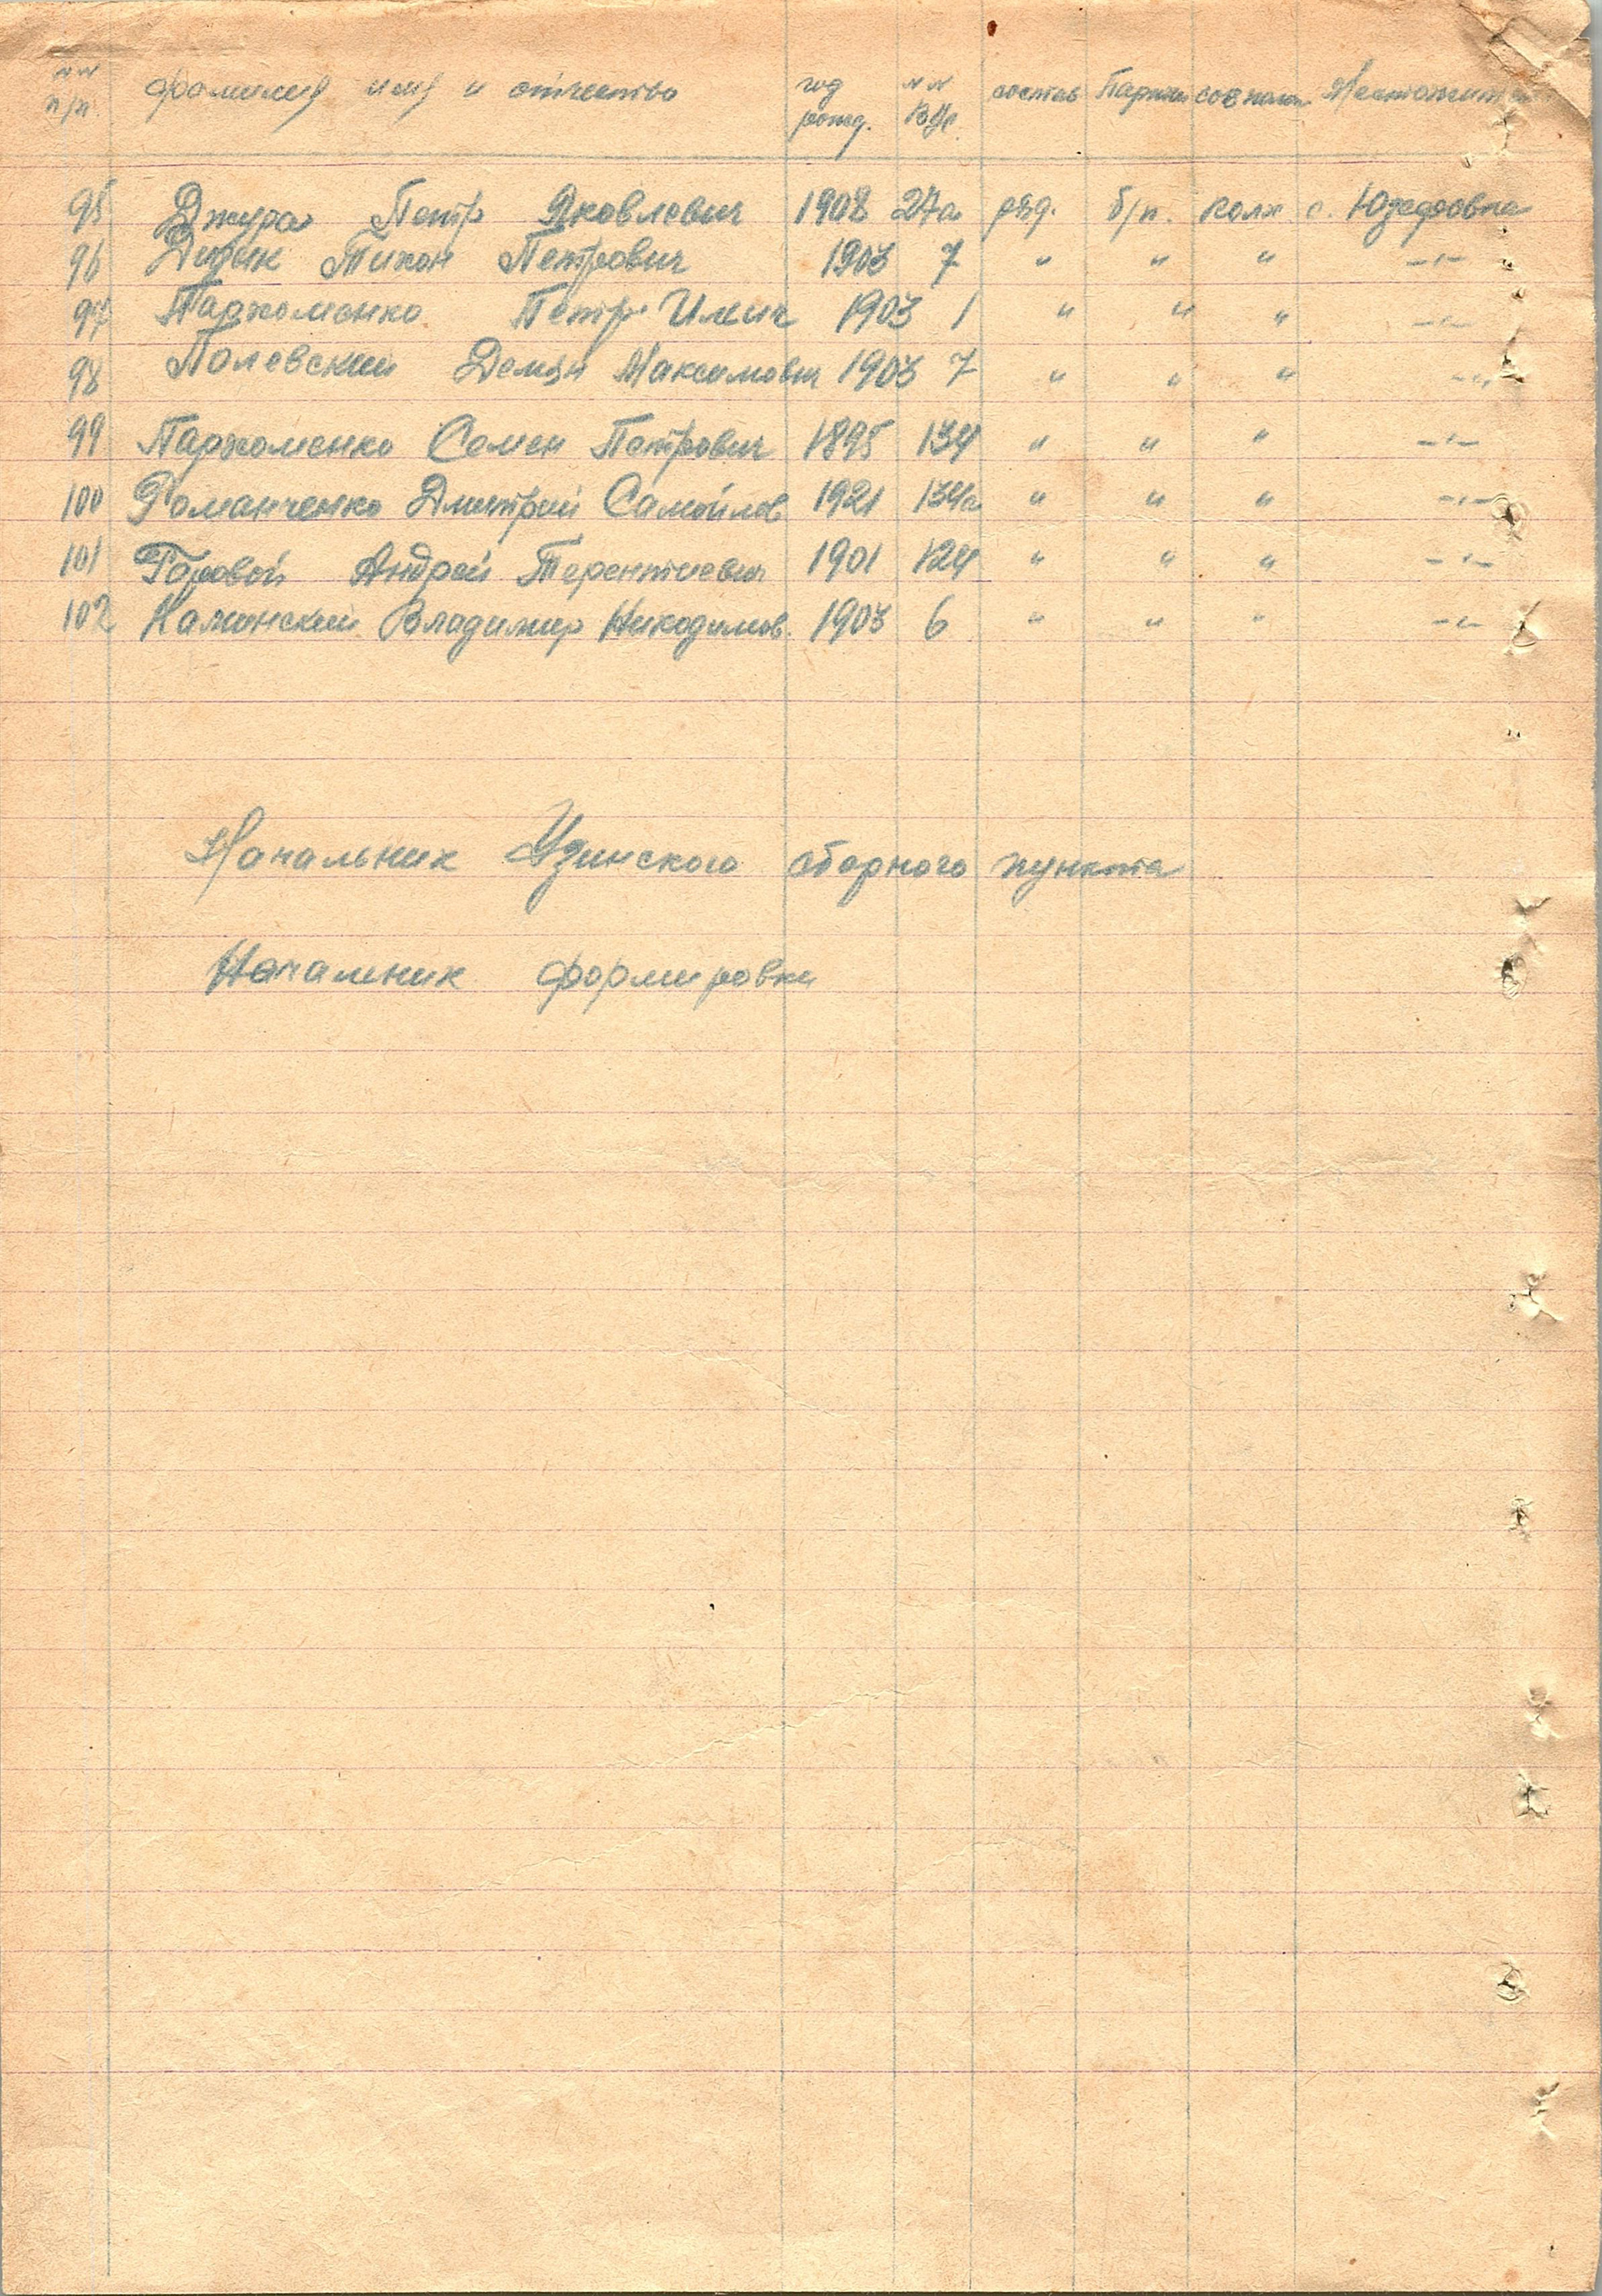 №№ п/п. фамилия имя и отчество год рожд. №№ ВУС состав Партийн соц полож Местожит
95 Джура Петр Яковлевич 1908 27а ряд. б/п. колх с. Юзефовка
96 Дидык Тихон Петрович 1903 7 " " " -"-
97 Пархоменко Петр Илич 1903 1 " " " -"-
98 Полевский Демян Максимович 1903 7 " " " -"-
99 Пархоменко Семен Петрович 1895 134 " " " -"-
100 Романченко Дмитрий Самойлов 1921 134а " " " -"-
101 Горовой Андрей Терентиевич 1901 124 " " " -"-
102 Каминский Владимир Никодимов. 1903 6 " " " -"-
Начальник Узинского сборного пункта
Начальник формировки